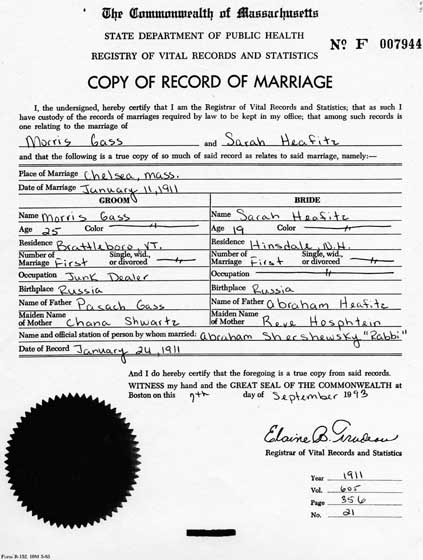 The Commonwealth of Massachusetts
STATE DEPARTMENT OF PUBLIC HEALTH
REGISTRY OF VITAL RECORDS AND STATISTICS
No F 007944
COPY OF RECORD OF MARRIAGE
I, the undersigned, hereby certify that I am the Registrar of Vital Records and Statistics; that as such I
have custody of the records of marriages required by law to be kept in my office; that among such records is
one relating to the marriage of
Morris Gass and Sarah Heafitz
and that the following is a true copy of so much of said record as relates to said marriage, namely:—
Place of Marriage Chelsea, Mass.
Date of Marriage January 11, 1911
GROOM BRIDE
Name Morris Gass Name Sarah Heafitz
Age 25 Color Age 19 Color
Residence Brattleboro, VT. Residence Hinsdale, N.H.
Number of Single, wid., Number of Single, wid.,
Marriage First or divorced Marriage First or divorced
Occupation Junk Dealer Occupation
Birthplace Russia Birthplace Russia
Name of Father Pasach Gass Name of Father Abraham Heafitz
Maiden Name Maiden Name
of Mother Chana Shwartz of Mother Reve Hosphtein
Name and official station of person by whom married: Abraham Shershewsky "Rabbi"
Date of Record January 24, 1911
And I do hereby certify that the foregoing is a true copy from said records.
WITNESS my hand and the GREAT SEAL OF THE COMMONWEALTH at
Boston on this 7th day of September 1993
Elaine B. Trudeau
Registrar of Vital Records and Statistics
Year 1911
Vol. 605
Page 356
No. 21
Form R-152. 10M 5-83